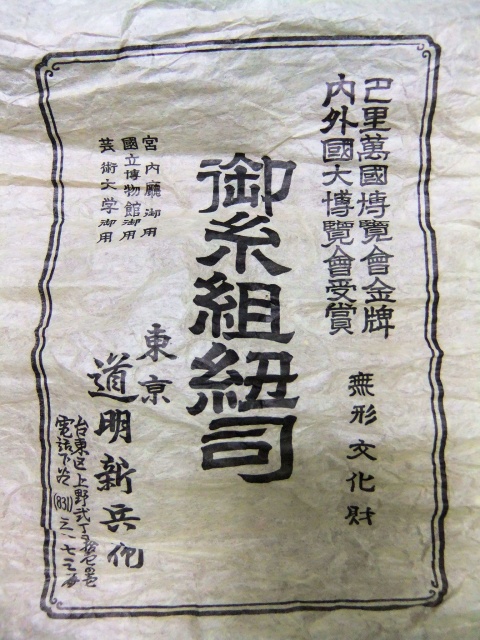 巴里萬國博覽會金牌
内外國大博覽會受賞
無形文化財
御糸組紐司
宮内廳御用
國立博物館御用
芸術大学御用
東京
道明新兵衛
台東区上野弐丁目
電話下谷(831)